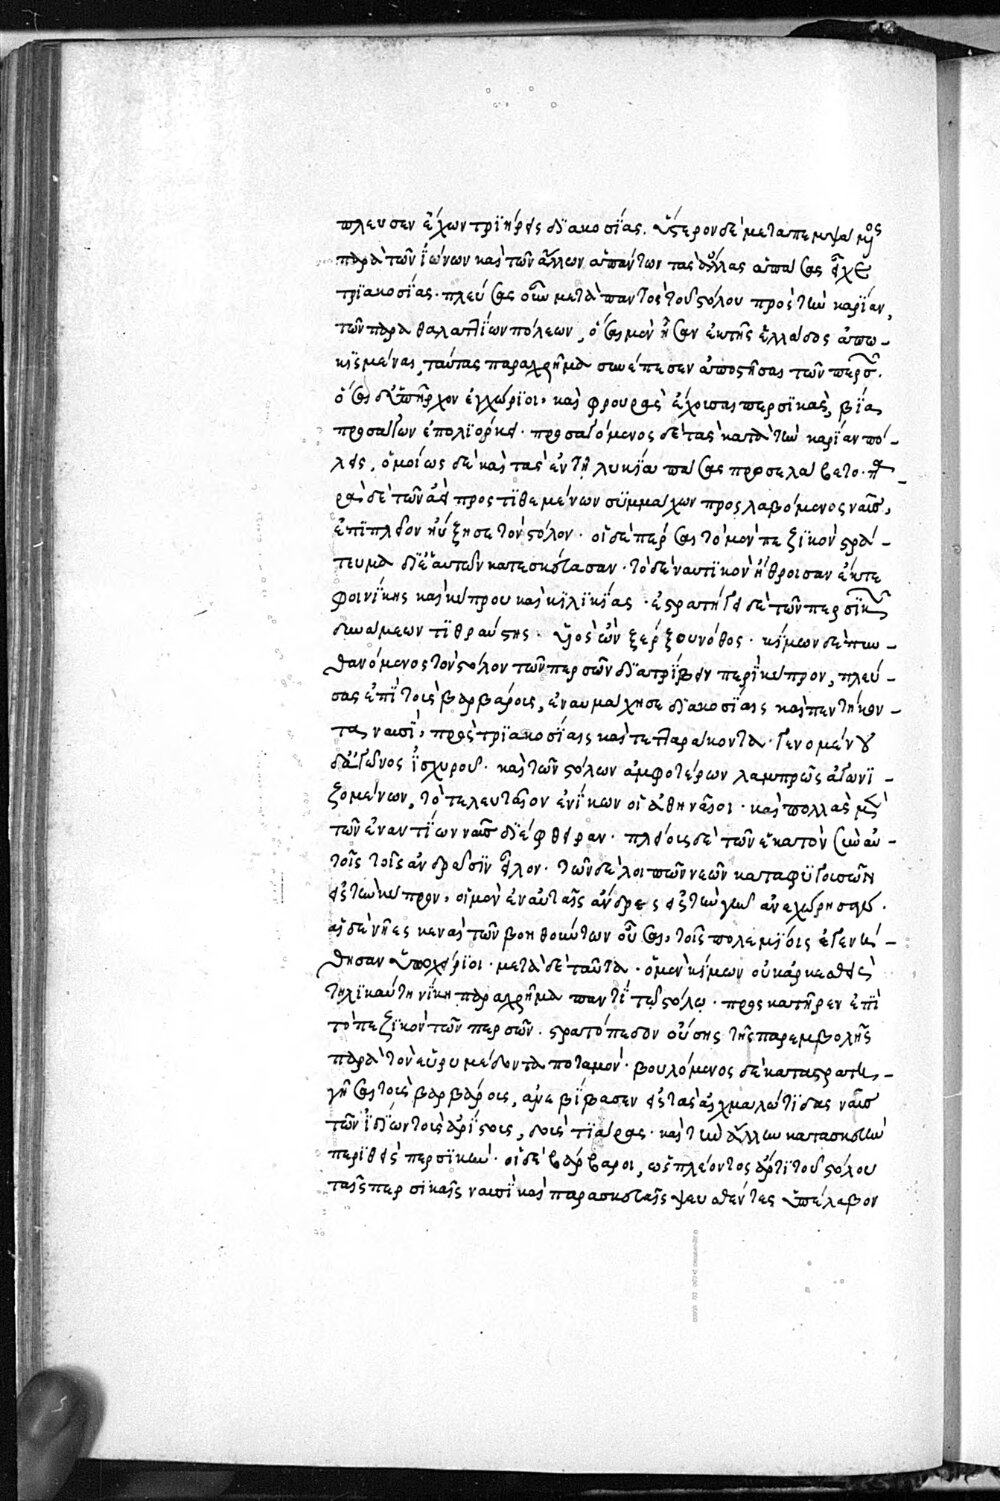 πλευσεν ἔχων τριήρεις διακοσίας. ὕστερον δὲ μεταπεμψάμενος
παρὰ τῶν ἰώνων καὶ τῶν ἄλλων ἁπάντων τὰς ὅλας ἁπάσας εἶχε
τριακοσίας· πλεύσας οὖν μετὰ παντὸς τοῦ στόλου πρὸς τὴν καρίαν,
τῶν παραθαλαττίων πόλεων, ὅσαι μὲν ἦσαν ἐκ τῆς ἑλλάδος ἀπῳ-
κισμέναι, ταύτας παραχρῆμα συνέπεισεν ἀποστῆσαι τῶν περσῶν.
ὅσαι δ' ὑπῆρχον ἐγχώριοι, καὶ φρουρὰς ἔχουσαι περσικὰς, βίαν
προσάγων ἐπολιόρκει· προσαγόμενος δὲ τὰς κατὰ τὴν καρίαν πό-
λεις, ὁμοίως δὲ καὶ τὰς ἐν τῇ λυκίᾳ πάσας προσελάβετο· πα-
ρὰ δὲ τῶν ἀεὶ προστιθεμένων συμμάχων προσλαβόμενος ναῦς,
ἐπιπλεῖον ηὔξησε τὸν στόλον· οἱ δὲ πέρσαι τὸ μὲν πεζικὸν στρά-
τευμα δι' ἑαυτῶν κατεσκεύασαν· τὸ δὲ ναυτικὸν ἤθροισαν ἔκ τε
φοινίκης καὶ κύπρου καὶ κιλικίας· ἐστρατήγει δὲ τῶν περσικῶν
δυνάμεων τιθραύστης· υἱὸς ὢν ξέρξου νόθος· κίμων δὲ πυν-
θανόμενος τὸν στόλον τῶν περσῶν διατρίβειν περὶ κύπρον, πλεύ-
σας ἐπὶ τοὺς βαρβάρους, ἐναυμάχησε διακοσίαις καὶ πεντήκον-
τα ναυσὶ, πρὸς τριακοσίαις καὶ τετταράκοντα· γενομένου
δ' ἀγῶνος ἰσχυροῦ· καὶ τῶν στόλων ἀμφοτέρων λαμπρῶς ἀγωνι-
ζομένων, τὸ τελευταῖον ἐνίκων οἱ ἀθηναῖοι· καὶ πολλὰς μὲν
τῶν ἐναντίων ναῦς διέφθειραν· πλείους δὲ τῶν ἑκατὸν σὺν αὐ-
τοῖς τοῖς ἀνδράσιν εἷλον· τῶν δὲ λοιπῶν νεῶν καταφυγουσῶν
εἰς τὴν κύπρον, οἱ μὲν ἐν αὐταῖς ἄνδρες εἰς τὴν γῆν ἀνεχώρησαν.
αἱ δὲ νῆες κεναὶ τῶν βοηθούντων οὖσαι, τοῖς πολεμίοις ἐγενή-
θησαν ὑποχείριοι· μετὰ δὲ ταῦτα· ὁ μὲν κίμων οὐκ ἀρκεσθεὶς
τηλικαύτῃ νίκῃ παραχρῆμα παντὶ τῷ στόλῳ· προσκατῆρεν ἐπὶ
τὸ πεζικὸν τῶν περσῶν· στρατόπεδον οὔσης τῆς παρεμβολῆς
παρὰ τὸν εὐρυμέδοντα ποταμόν· βουλόμενος δὲ καταστρατη-
γῆσαι τοὺς βαρβάρους, ἀνεβίβασεν εἰς τὰς αἰχμαλώτιδας ναῦς
τῶν ἰδίων τοὺς ἀρίστους, δοὺς τιάρας· καὶ τὴν ἄλλην κατασκευὴν
περιθεὶς περσικήν· οἱ δὲ βάρβαροι, ὡς πλέοντος ἄρτι τοῦ στόλου
ταῖς περσικαῖς ναυσὶ καὶ παρασκευαῖς ψευσθέντες ὑπέλαβον